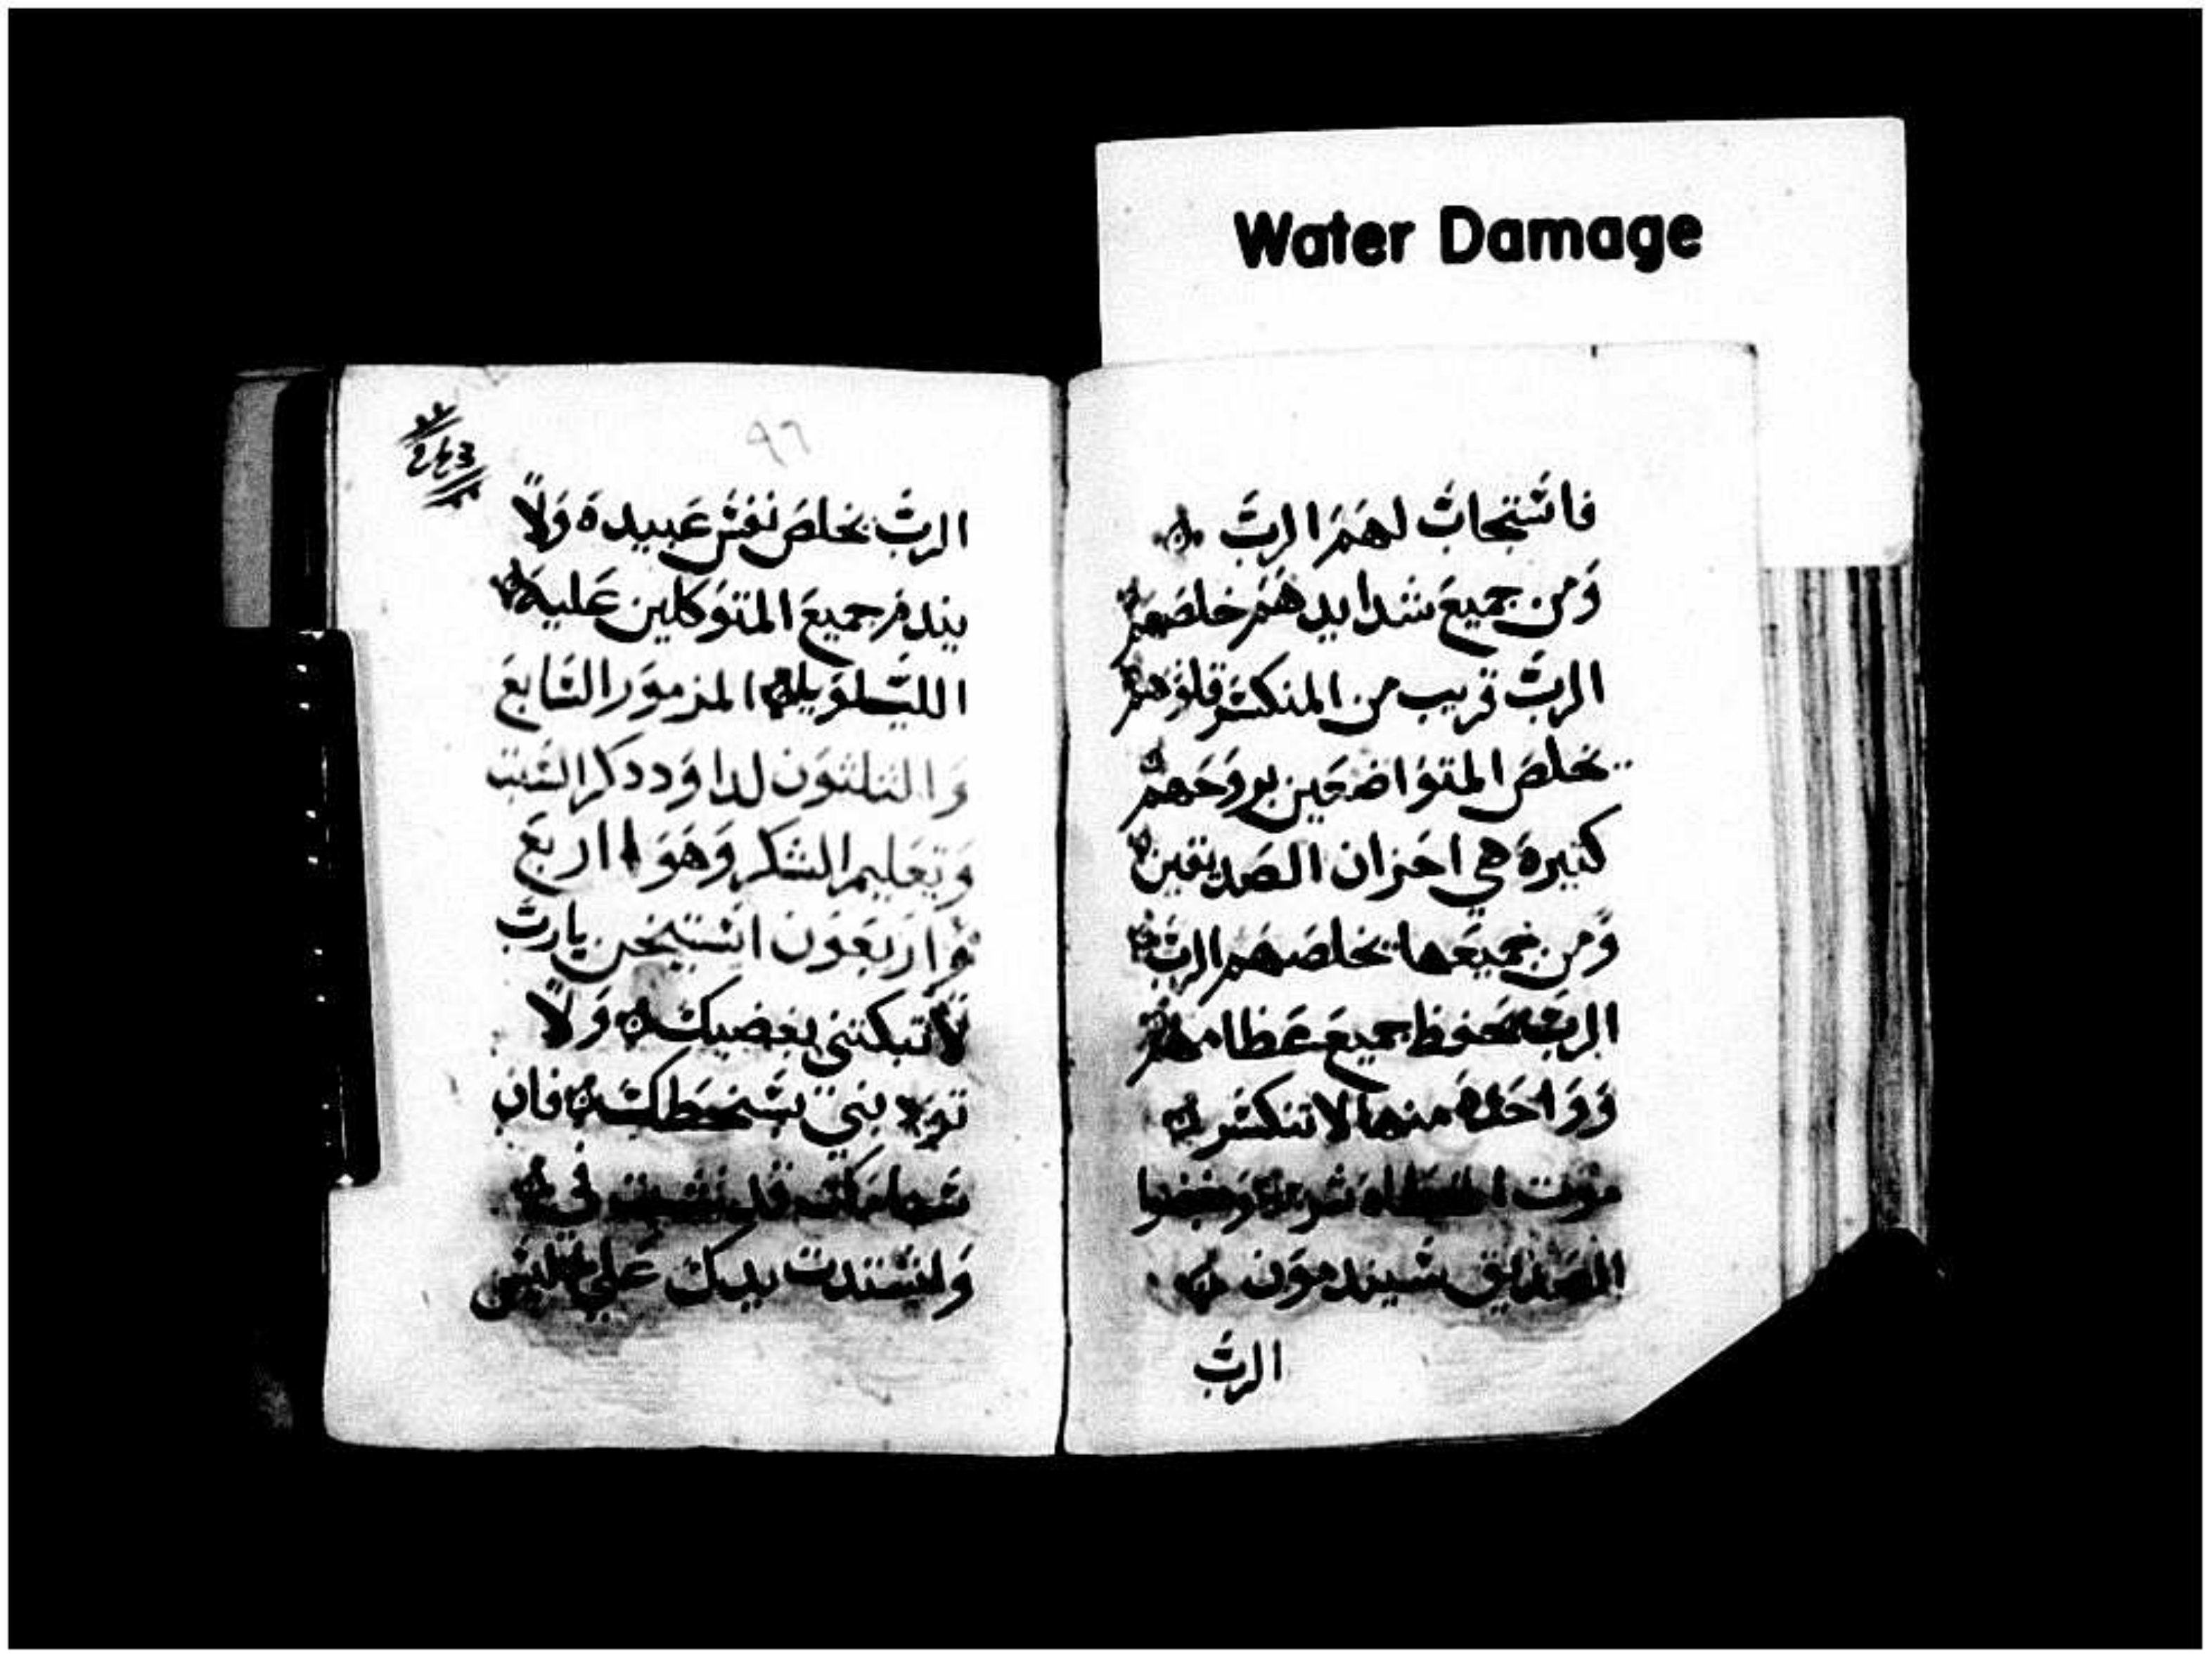 Water Damage
فاستجاب لهم الرب
ومن جميع شدايدهم خلصهم
الرب قريب من المنكسر قلوبهم
يخلص المتواضعين بروحهم
كثيره هي احزان الصديقين
ومن جميعها يخلصهم الرب
الرب يحفظ جميع عظامهم
وواحده منها لا تنكسر
موت شرير
الصديق سيندمون
الرب
٩٦
الرب يخلص نفس عبيده ولا
يندم جميع المتوكلين عليه
الليلويا المزمور السابع
والثلثون لداود دكر السبت
وتعليم الشكر وهو اربع
واربعون استيخن يارب
لا تبكتني بغضبك ولا
تودبني بسخطك فان
سهامك قد نشبت في
ولستندت يدك علي